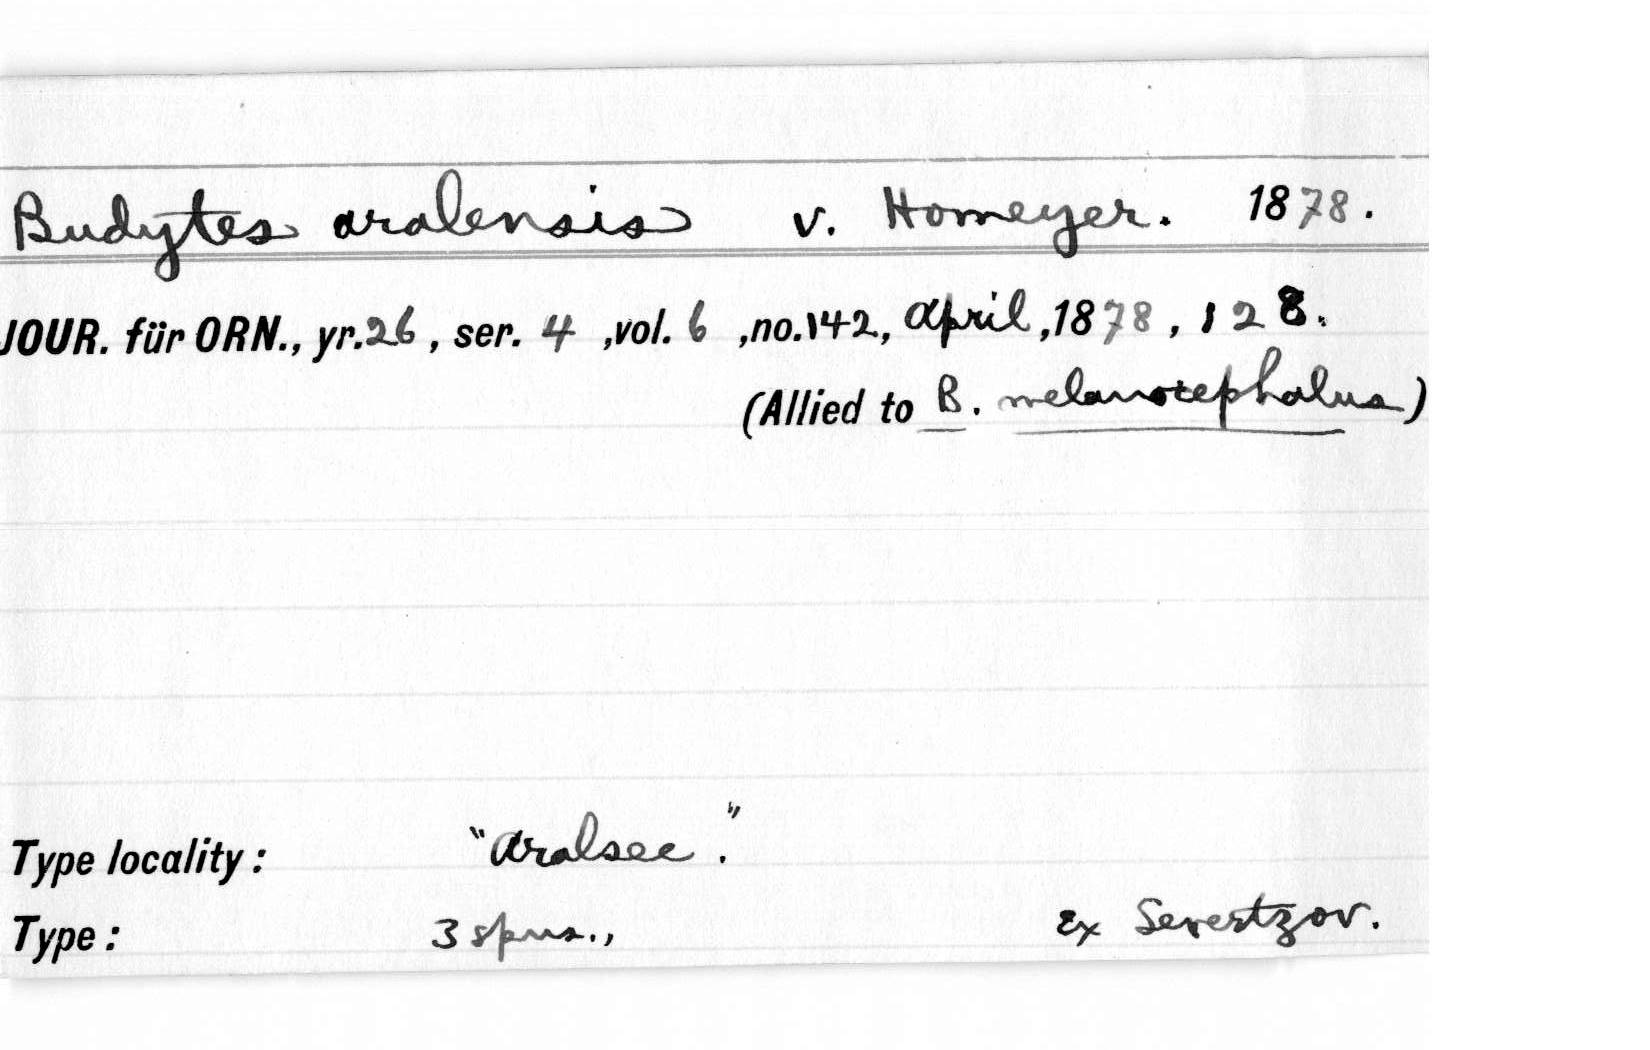 Budytes aralensis v. Homeyer. 1878.
JOUR. für ORN., yr.26, ser. 4 ,vol. 6 ,no.142, April ,1878 , 128.
(Allied to B. melanocephalus)
Type locality: "Aralsee."
Type: 3 spms., Ex Severtzov.